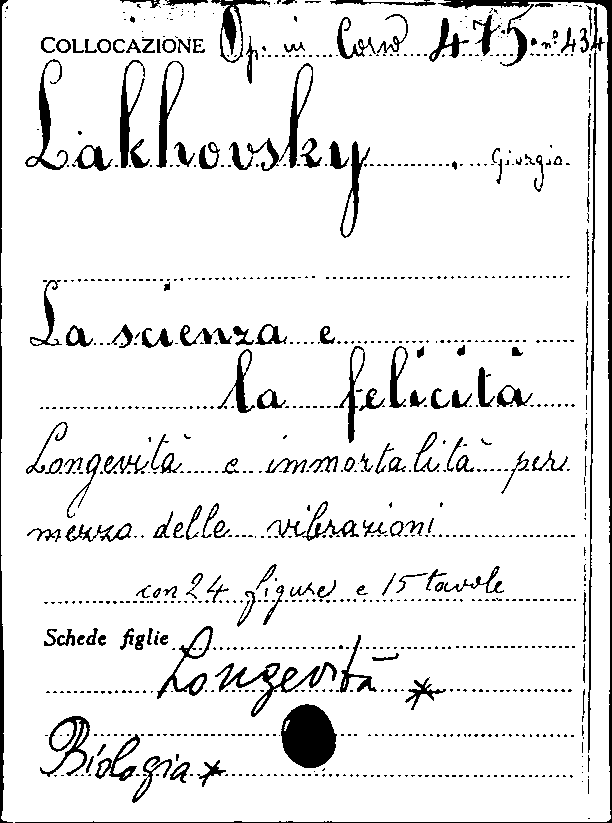 COLLOCAZIONE Op. in Corso 475. nº 434
Lakhovsky . Giorgio
La scienza e
la felicità
Longevità e immortalità per
mezzo delle vibrazioni
con 24 figure e 15 tavole
Schede figlie
Longevità *
Biologia *